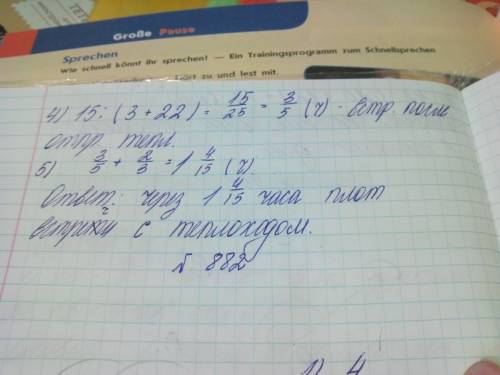 Große Pause
Sprechen
Wie schnell könnt ihr sprechen? — Ein Trainingsprogramm zum Schnellsprechen
hört zu und lest mit.
4) 15 : (3 + 22) = 15/25 = 3/5 (ч) - встр. после
отпр. тепл.
5) 3/5 + 2/3 = 1 4/15 (ч).
Ответ: через 1 4/15 часа плот
встречи с теплоходом.
№ 882
1) 4